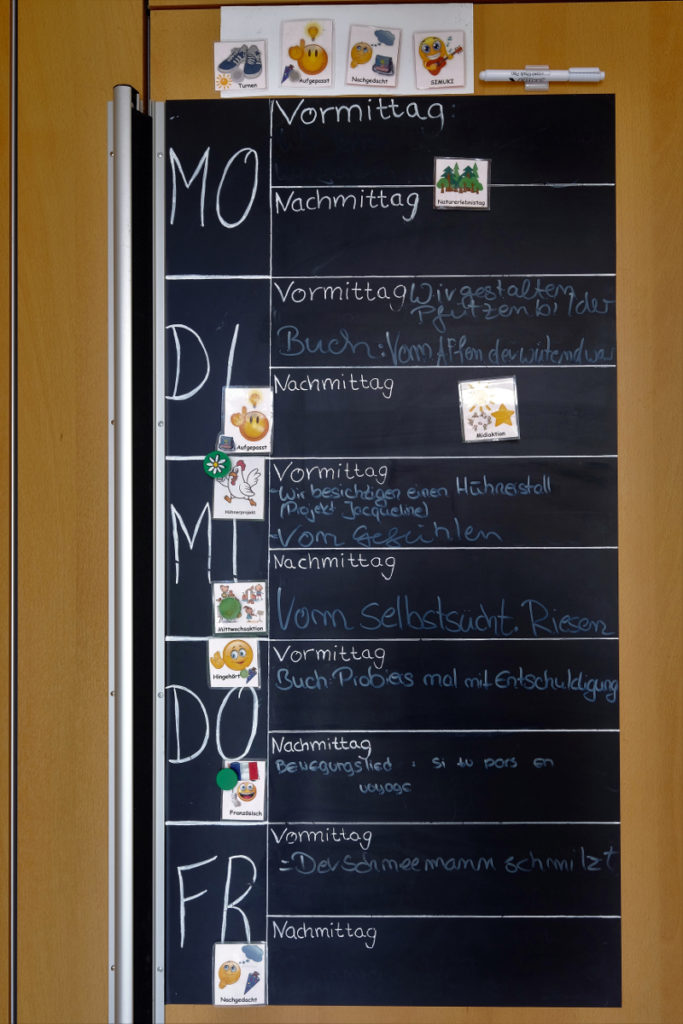 Turnen
Aufgepasst
Nachgedacht
SIMUKI
MO
Vormittag
Naturerlebnistag
Nachmittag
DI
Vormittag Wir gestalten
Pfützenbilder
Buch: Vom Affen der wütend war
Nachmittag
Aufgepasst
Midiaktion
MI
Vormittag
Hühnerprojekt
-Wir besichtigen einen Hühnerstall
(Projekt Jacqueline)
-Vom Gefühlen
Nachmittag
Mittwochsaktion
Vom selbstsücht. Riesen
DO
Vormittag
Hingehört
Buch: Probiers mal mit Entschuldigung
Nachmittag
Bewegungslied : si tu pars en
voyage
Französisch
FR
Vormittag
=Der Schneemann schmilzt
Nachmittag
Nachgedacht